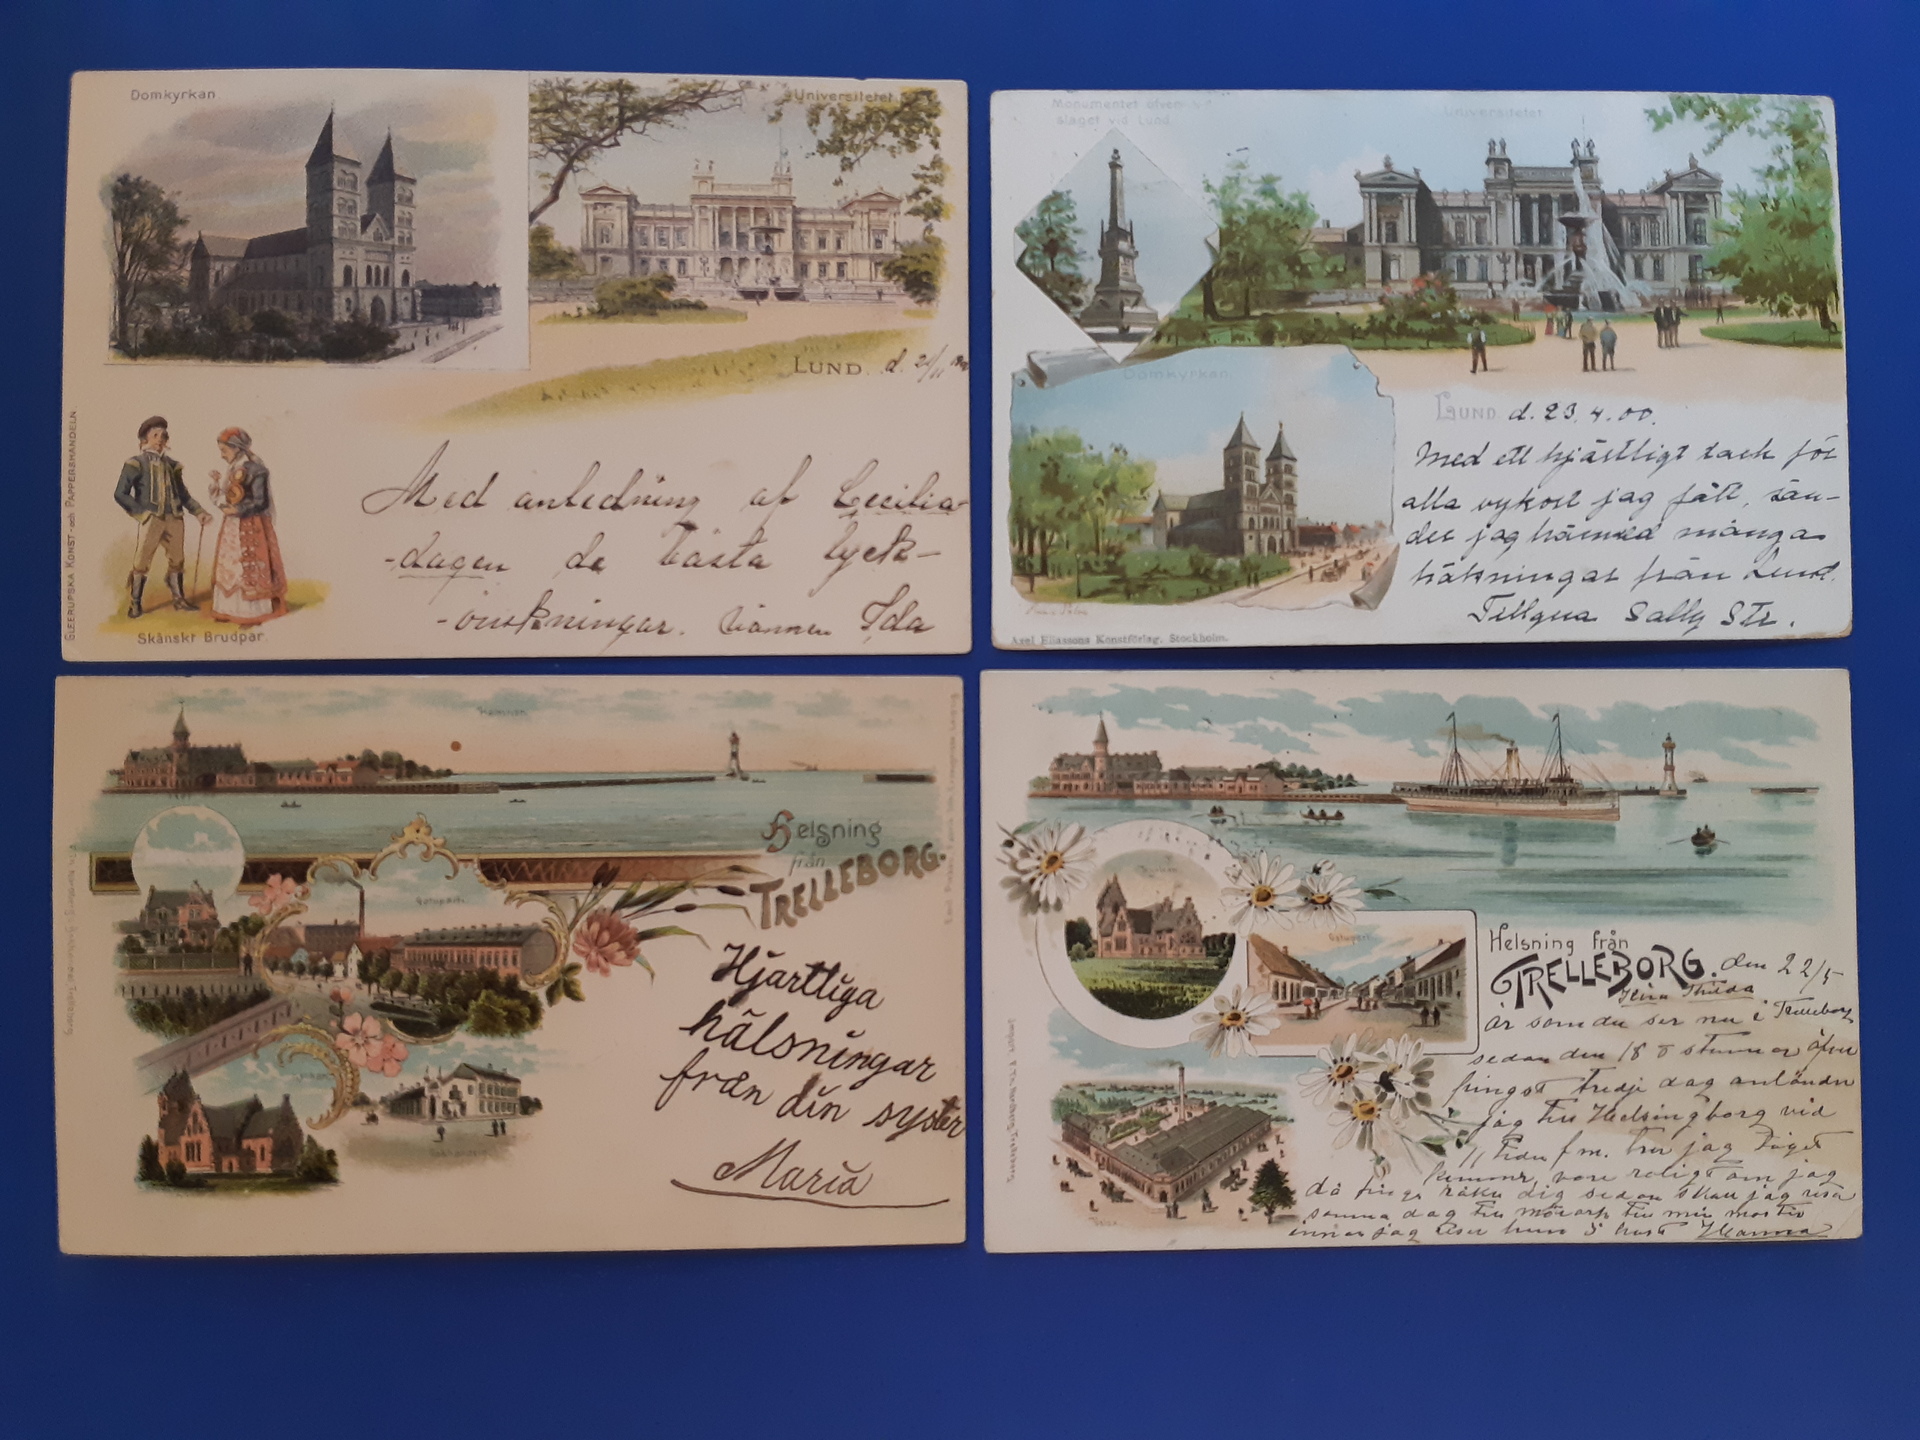 Domkyrkan
Universitetet
LUND. d.
GLEERUPSKA KONST- och PAPPERSHANDELN.
Skånskt Brudpar.
Med anledning af Cecilia-
-dagen de bästa lyck-
-önskningar. Vännen Ida
Monumentet öfver
slaget vid Lund.
Universitetet
Domkyrkan.
LUND. d. 23.4.00.
Med ett hjärtligt tack för
alla vykort jag fått, sän-
der jag härmed många
hälsningar från Lund.
Tillgna Sally Str.
Axel Eliassons Konstförlag. Stockholm.
Hamnen.
Helsning
från
TRELLEBORG.
Gatuparti.
Hjärtliga
hälsningar
från din syster
Maria
Gatuparti.
Helsning från
TRELLEBORG. den 22/5
Kära Thilda
är som du ser nu i Trelleborg
sedan den 18
pingst tredje dag anländer
jag till Helsingborg vid
11 tiden f m. tror jag tåget
kommer, vore roligt om jag
då finge råka dig sedan skall jag resa
samma dag till min moster
innan jag reser hem Hanna